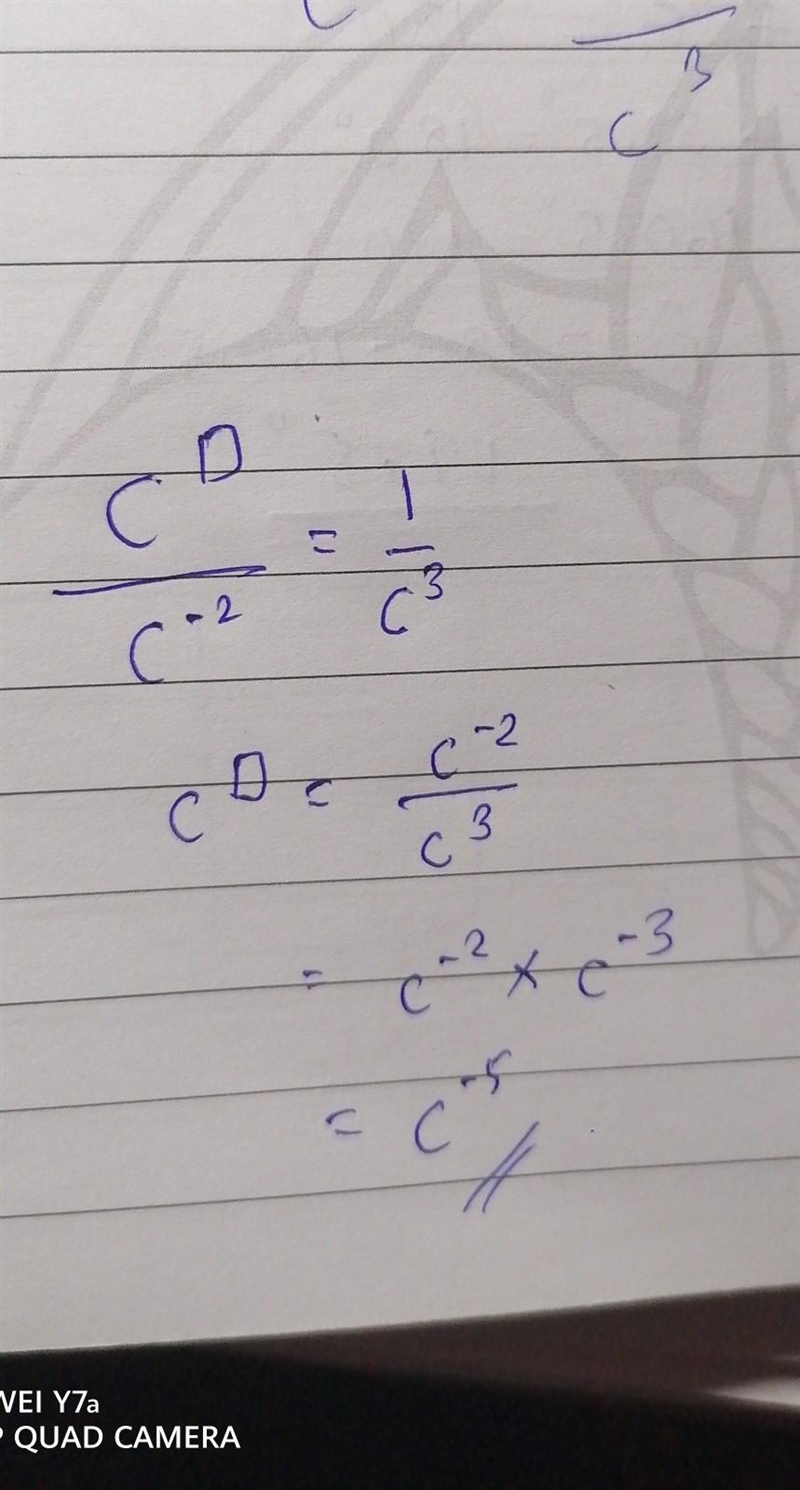 c³
C^□ / C⁻² = 1 / C³
C^□ = C⁻² / C³
= C⁻² × C⁻³
= C⁻⁵ //
WEI Y7a
P QUAD CAMERA